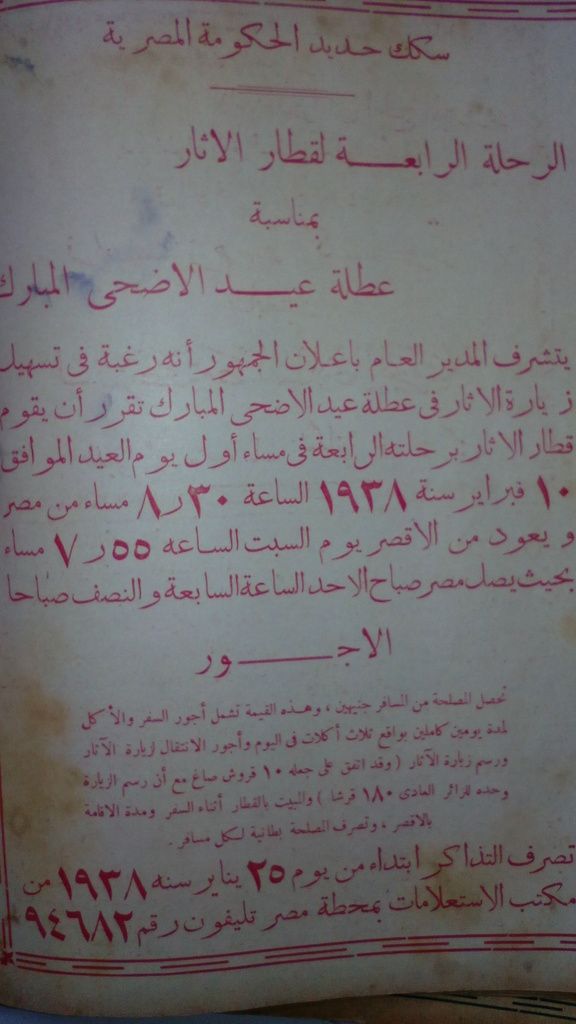 سكك حديد الحكومة المصرية
الرحلة الرابعـــة لقطار الاثار
بمناسبة
عطلة عيـــد الاضحى المبارك
يتشرف المدير العام باعلان الجمهور أنه رغبة فى تسهيل
زيارة الاثار فى عطلة عيد الاضحى المبارك تقرر أن يقوم
قطار الاثار برحلته الرابعة فى مساء أول يوم العيد الموافق
١٠ فبراير سنة ١٩٣٨ الساعة ٣٠ر٨ مساء من مصر
ويعود من الاقصر يوم السبت الساعه ٥٥ر٧ مساء
بحيث يصل مصر صباح الاحد الساعة السابعة والنصف صباحا
الاجــــور
تحصل المصلحة من المسافر جنيهين ، وهذه القيمة تشمل أجور السفر والأكل
لمدة يومين كاملين بواقع ثلاث أكلات فى اليوم وأجور الانتقال لزيارة الآثار
ورسم زيارة الآثار ( وقد اتفق على جعله ١٠ قروش صاغ مع أن رسم الزيارة
وحده للزائر العادى ١٨٠ قرشا ) والمبيت بالقطار أثناء السفر ومدة الاقامة
بالاقصر ، وتصرف المصلحة بطانية لكل مسافر .
تصرف التذاكر ابتداء من يوم ٢٥ يناير سنه ١٩٣٨ من
مكتب الاستعلامات بمحطة مصر تليفون رقم ٩٤٦٨٢